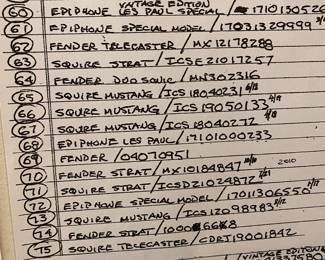 VINTAGE EDITION
60 EPIPHONE LES PAUL SPECIAL / 1710130526
61 EPIPHONE SPECIAL MODEL / 17031329999 3/17
62 FENDER TELECASTER / MX12178288
63 SQUIRE STRAT / ICSE21017257
64 FENDER DUO SONIC / MN302316
65 SQUIRE MUSTANG / ICS18040231 4/18
66 SQUIRE MUSTANG / ICS19050133 5/19
67 SQUIRE MUSTANG / ICS18040272 4/18
68 EPIPHONE LES PAUL / 17101000233
69 FENDER / 04070951
70 FENDER STRAT / MX10184847 10/10 2010
71 SQUIRE STRAT / ICSD21024872 1/21
72 EPIPHONE SPECIAL MODEL / 17011306550 1/17
73 SQUIRE MUSTANG / ICS12098983 9/12
74 FENDER STRAT /
75 SQUIRE TELECASTER / CDRT19001842
VINTAGE EDITION